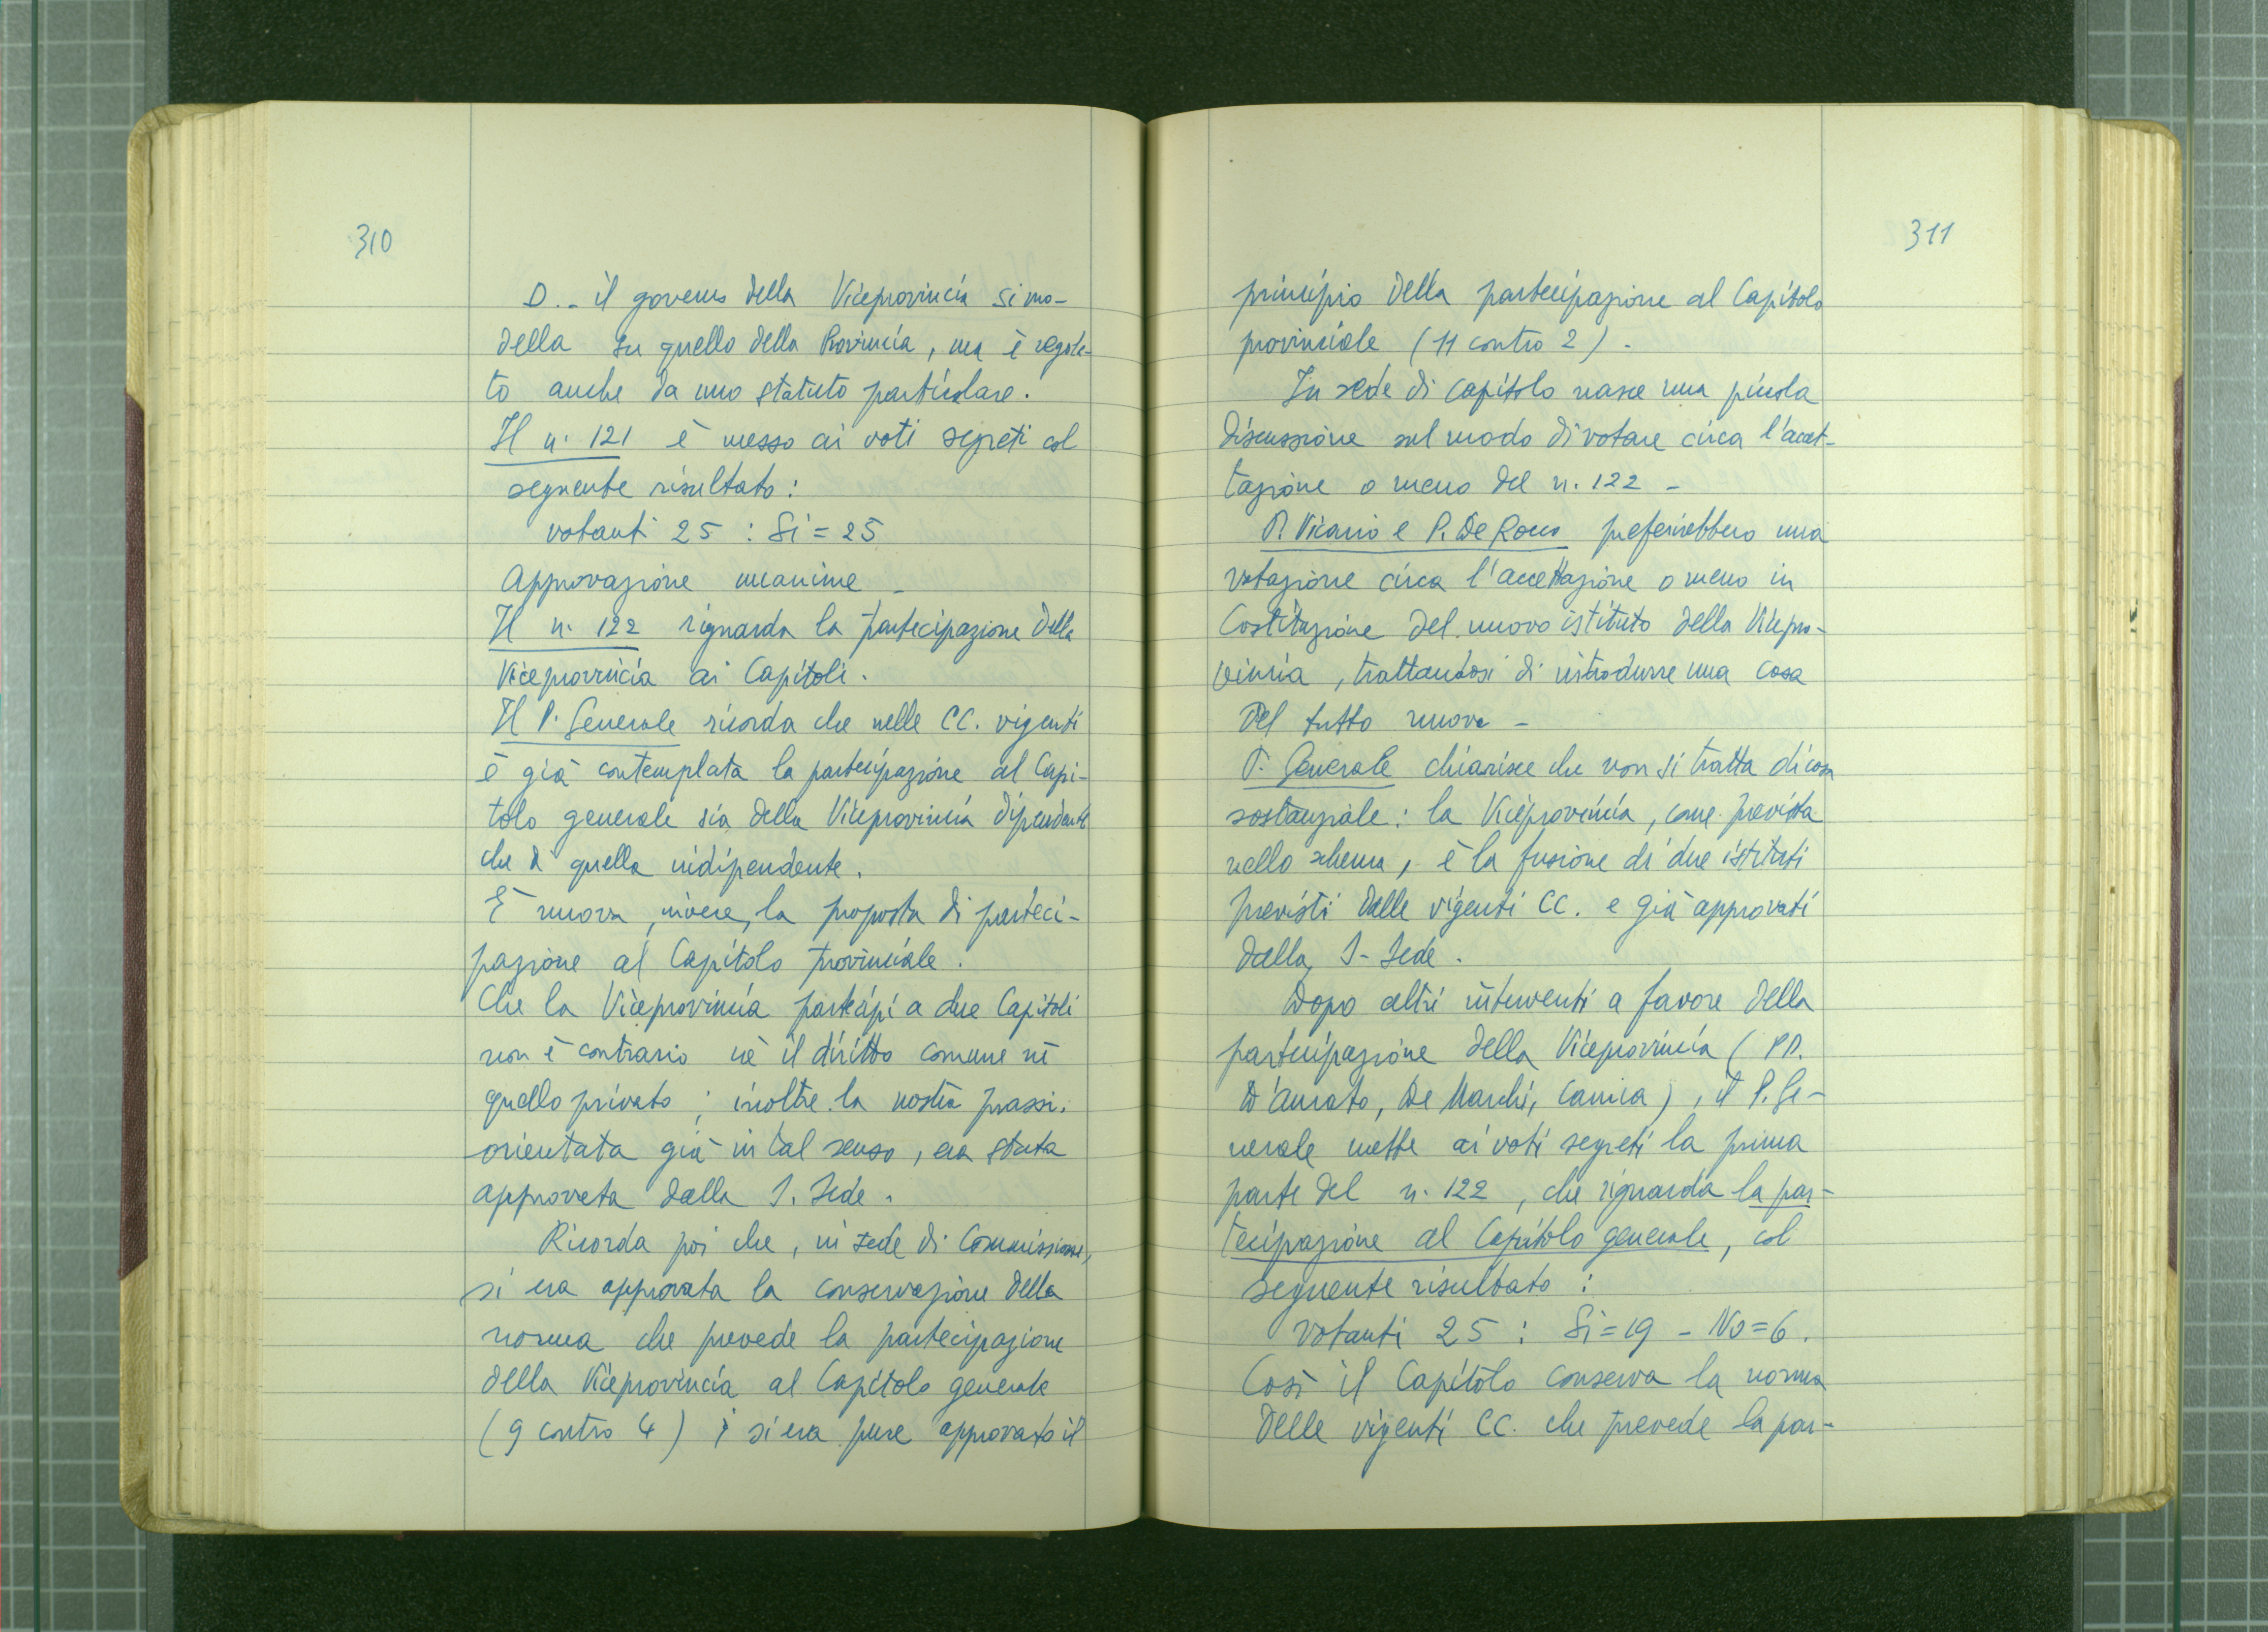 310
D. - il governo della Viceprovincia si mo-
della su quello della Provincia, ma è regola-
to anche da uno statuto particolare.
Il n. 121 è messo ai voti segreti col
seguente risultato:
votanti 25 : Si = 25
Approvazione unanime -
Il n. 122 riguarda la partecipazione della
Viceprovincia ai Capitoli.
Il P. Generale ricorda che nelle CC. vigenti
è già contemplata la partecipazione al Capi-
tolo generale sia della Viceprovincia dipendente
che di quella indipendente.
È nuova, invece, la proposta di parteci-
pazione al Capitolo provinciale.
Che la Viceprovincia partecipi a due Capitoli
non è contrario nè il diritto comune nè
quello privato; inoltre la nostra prassi,
orientata già in tal senso, era stata
approvata dalla S. Sede.
Ricorda poi che, in sede di Commissione,
si era approvata la conservazione della
norma che prevede la partecipazione
della Viceprovincia al Capitolo generale
(9 contro 4); si era pure approvato il
311
principio della partecipazione al Capitolo
provinciale (11 contro 2).
In sede di capitolo nasce una piccola
discussione sul modo di votare circa l'accet-
tazione o meno del n. 122 -
P. Vicario e P. De Rocco preferirebbero una
votazione circa l'accettazione o meno in
Costituzione del nuovo istituto della Vicepro-
vincia, trattandosi di introdurre una cosa
del tutto nuova -
P. Generale chiarisce che non si tratta di cosa
sostanziale: la Viceprovincia, come prevista
nello schema, è la fusione di due istituti
previsti dalle vigenti CC. e già approvati
dalla S. Sede.
Dopo altri interventi a favore della
partecipazione della Viceprovincia (PP.
D'Amato, De Marchi, Camica), il P. Ge-
nerale mette ai voti segreti la prima
parte del n. 122, che riguarda la par-
tecipazione al Capitolo generale, col
seguente risultato:
votanti 25 : Si = 19 - No = 6.
Così il Capitolo conserva la norma
delle vigenti CC. che prevede la par-